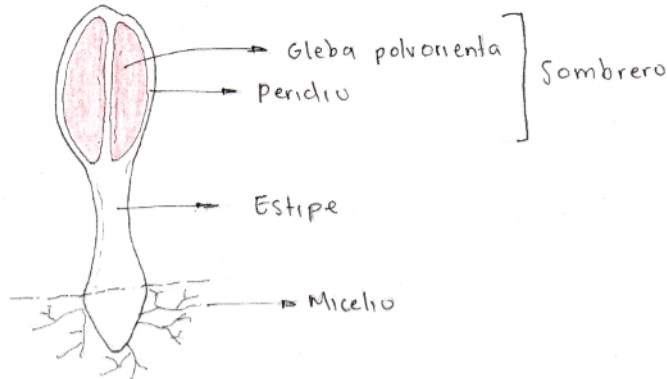 Gleba polvorienta
Peridio
Sombrero
Estipe
Micelio